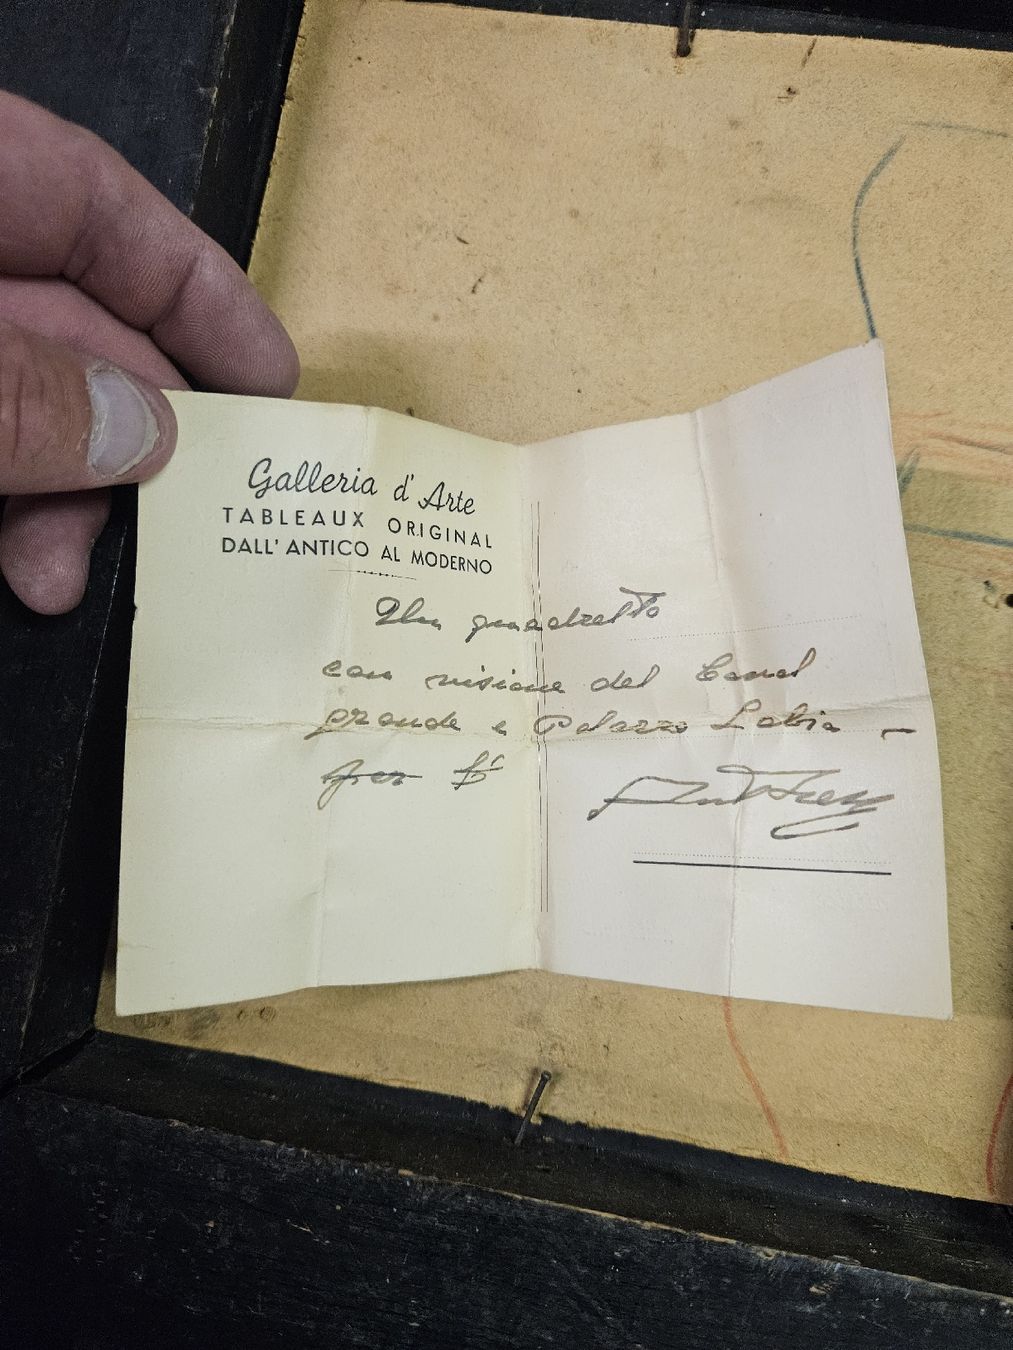 Galleria d'Arte
TABLEAUX ORIGINAL
DALL'ANTICO AL MODERNO
Un quadretto
con visione del Canal
grande e Palazzo Labia -
per £